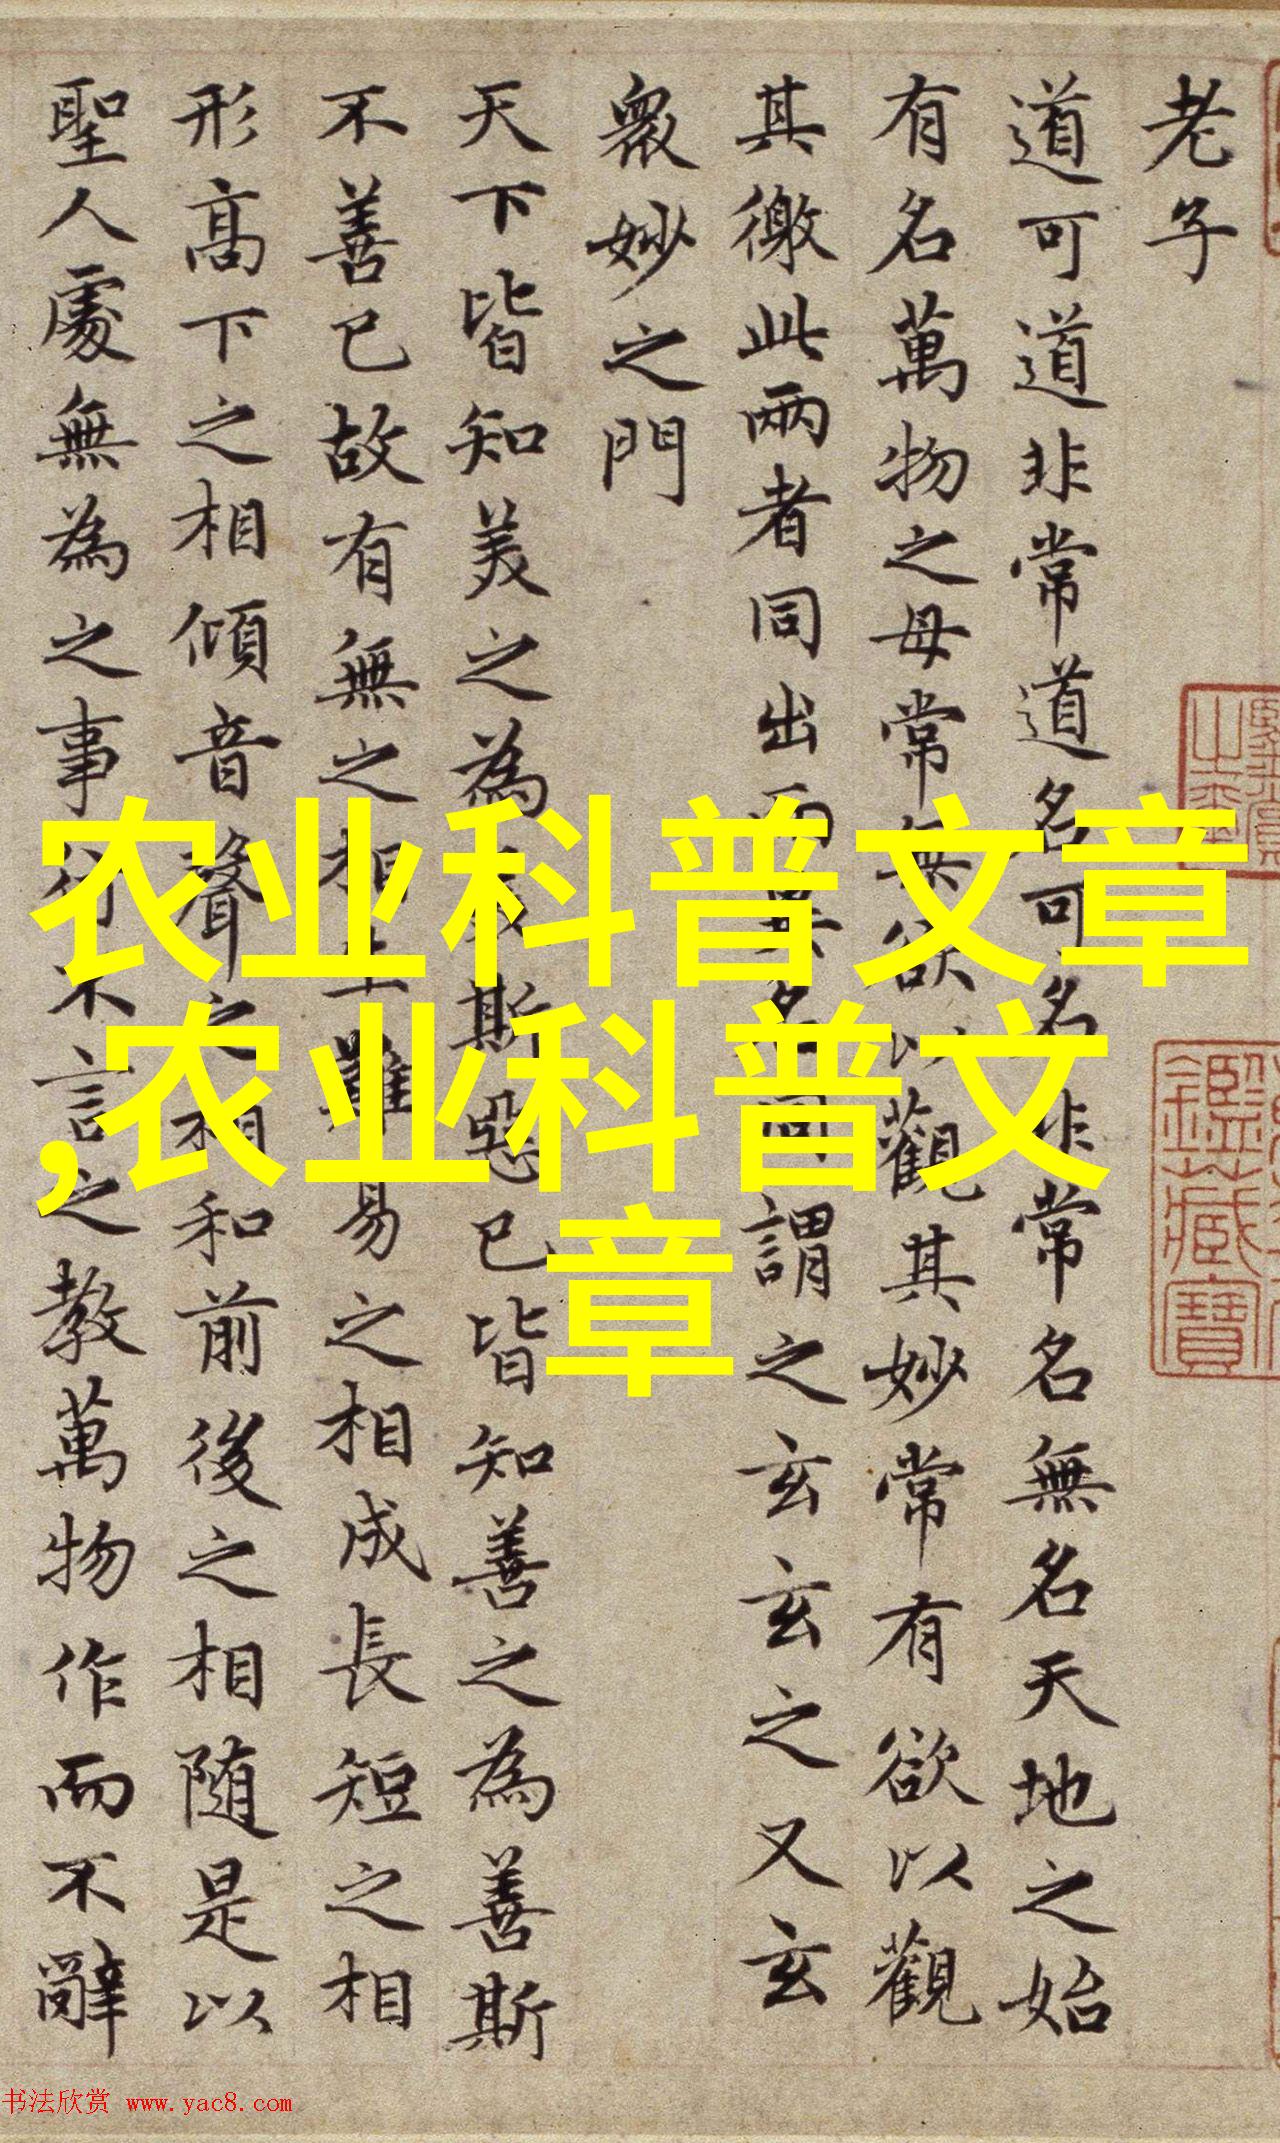 老子
道可道非常道名可名非常名無名天地之始
有名萬物之母常無欲以觀其妙常有欲以觀
其徼此兩者同出而異名同謂之玄玄之又玄
衆妙之門
天下皆知美之為美斯惡已皆知善之為善斯
不善已故有無之相生難易之相成長短之相
形高下之相傾音聲之相和前後之相随是以
聖人處無為之事行不言之教萬物作而不辭
农业科普文章
,农业科普文
章
鑑藏寶
书法欣赏 www.yac8.com